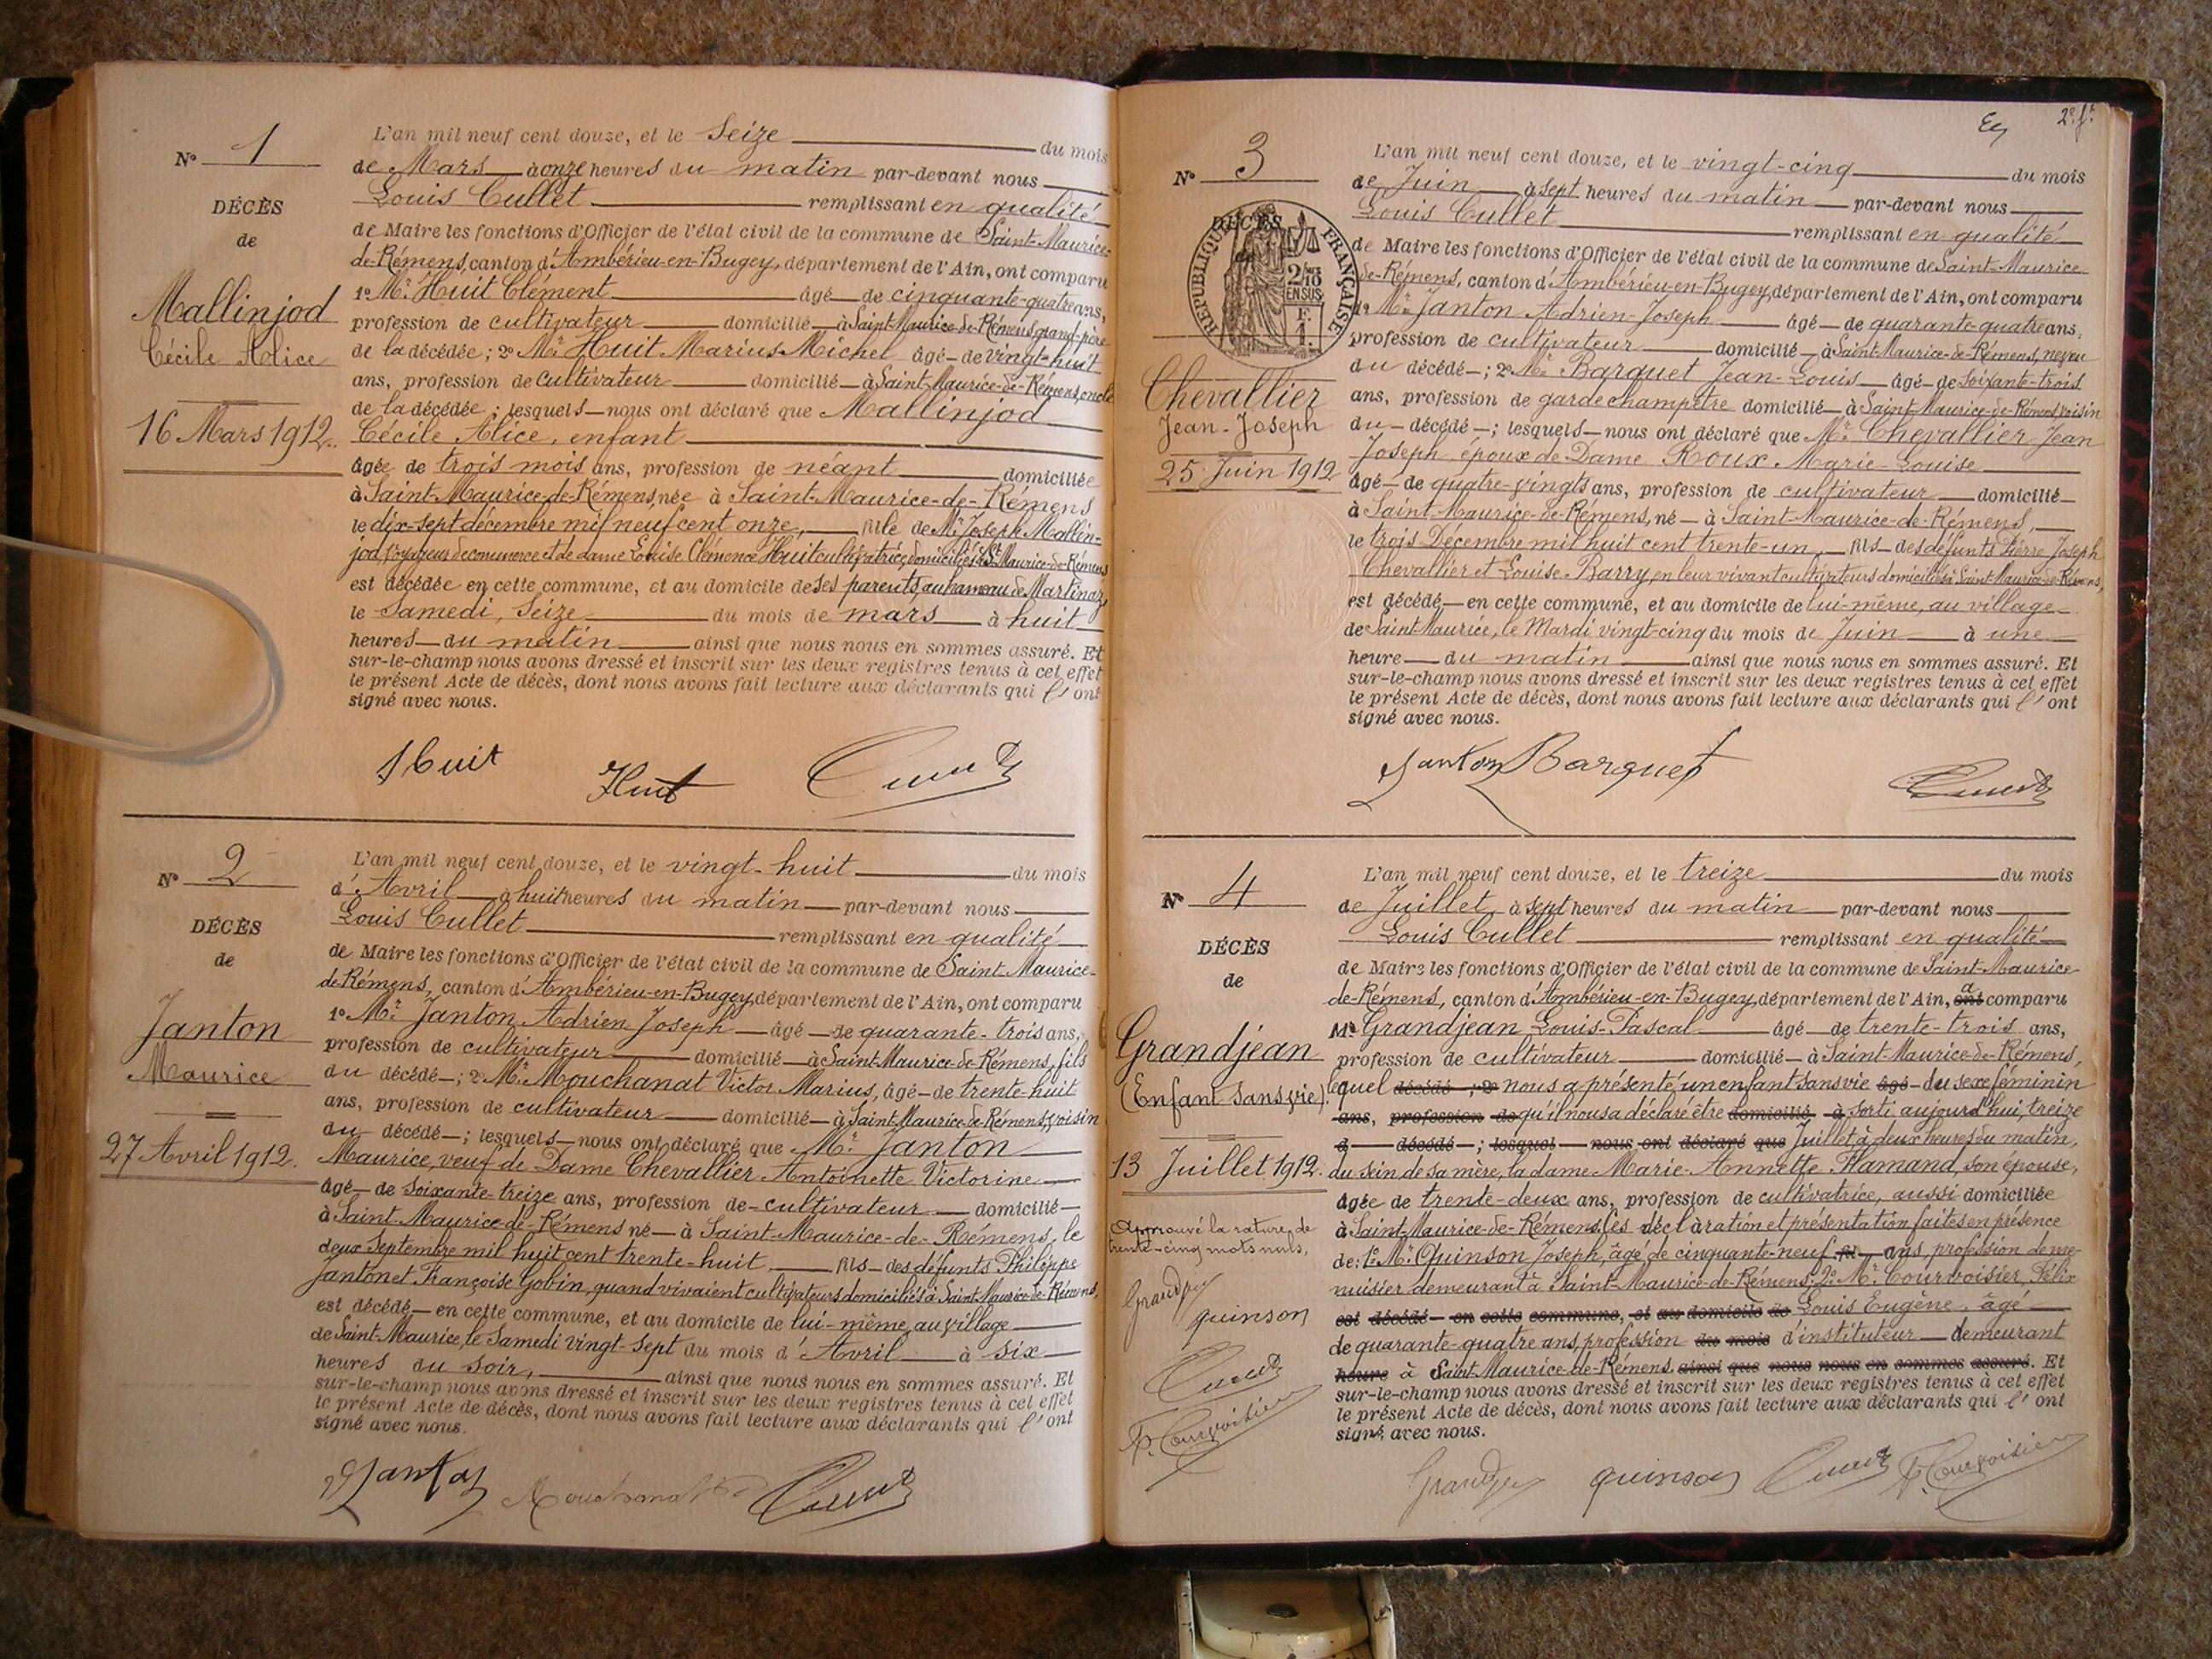 N° 1
DÉCÈS
de
Mallinjod
Cécile Alice
16 Mars 1912.
L'an mil neuf cent douze, et le Seize du mois
de Mars à onze heures du matin par-devant nous
Louis Cullet remplissant en qualité
de Maire les fonctions d'Officier de l'état civil de la commune de Saint-Maurice-
de-Rémens, canton d'Ambérieu-en-Bugey, département de l'Ain, ont comparu
1° Mr. Huit Clément âgé de cinquante-quatre ans,
profession de cultivateur domicilié à Saint-Maurice-de-Rémens, grand-père
de la décédée ; 2° Mr. Huit Marius Michel âgé de vingt-huit
ans, profession de cultivateur domicilié à Saint-Maurice-de-Rémens, oncle
de la décédée ; lesquels nous ont déclaré que Mallinjod
Cécile Alice, enfant
âgée de trois mois ans, profession de néant domiciliée
à Saint-Maurice-de-Rémens, née à Saint-Maurice-de-Rémens
le dix-sept décembre mil neuf cent onze, fille de Mr. Joseph Mallin-
jod, voyageur de commerce et de dame Louise Clémence Huit cultivatrice, domiciliés à St Maurice-de-Rémens
est décédée en cette commune, et au domicile de ses parents, au hameau de Martinaz,
le Samedi, Seize du mois de mars à huit
heures du matin ainsi que nous nous en sommes assuré. Et
sur-le-champ nous avons dressé et inscrit sur les deux registres tenus à cet effet
le présent Acte de décès, dont nous avons fait lecture aux déclarants qui l'ont
signé avec nous.
Huit Huit Cullet
N° 2
DÉCÈS
de
Janton
Maurice
27 Avril 1912.
L'an mil neuf cent douze, et le vingt-huit du mois
d'Avril à huit heures du matin par-devant nous
Louis Cullet remplissant en qualité
de Maire les fonctions d'Officier de l'état civil de la commune de Saint-Maurice-
de-Rémens, canton d'Ambérieu-en-Bugey, département de l'Ain, ont comparu
1° Mr. Janton Adrien Joseph âgé de quarante-trois ans,
profession de cultivateur domicilié à Saint-Maurice-de-Rémens, fils
du décédé ; 2° Mr. Mouchanat Victor Marius, âgé de trente-huit
ans, profession de cultivateur domicilié à Saint-Maurice-de-Rémens, voisin
du décédé ; lesquels nous ont déclaré que Mr. Janton
Maurice, veuf de Dame Chevallier Antoinette Victorine
âgé de soixante-treize ans, profession de cultivateur domicilié
à Saint-Maurice-de-Rémens né à Saint-Maurice-de-Rémens, le
deux Septembre mil huit cent trente-huit, fils des défunts Philippe
Janton et Françoise Gobin, quand vivaient cultivateurs domiciliés à Saint-Maurice-de-Rémens,
est décédé en cette commune, et au domicile de lui-même, au village
de Saint-Maurice, le Samedi vingt-sept du mois d'Avril à six
heures du soir, ainsi que nous nous en sommes assuré. Et
sur-le-champ nous avons dressé et inscrit sur les deux registres tenus à cet effet
le présent Acte de décès, dont nous avons fait lecture aux déclarants qui l'ont
signé avec nous.
Janton Mouchanat Cullet
2e ft
N° 3
DÉCÈS
RÉPUBLIQUE FRANÇAISE
2/10
EN SUS
F.
1.
Chevallier
Jean-Joseph
25 Juin 1912
L'an mil neuf cent douze, et le vingt-cinq du mois
de Juin à sept heures du matin par-devant nous
Louis Cullet remplissant en qualité
de Maire les fonctions d'Officier de l'état civil de la commune de Saint-Maurice
de-Rémens, canton d'Ambérieu-en-Bugey, département de l'Ain, ont comparu
1° Mr. Janton Adrien-Joseph âgé de quarante-quatre ans,
profession de cultivateur domicilié à Saint-Maurice-de-Rémens, neveu
du décédé ; 2° Mr. Barquet Jean-Louis âgé de soixante-trois
ans, profession de garde champêtre domicilié à Saint-Maurice-de-Rémens, voisin
du décédé ; lesquels nous ont déclaré que Mr. Chevallier Jean
Joseph époux de Dame Roux Marie-Louise
âgé de quatre-vingts ans, profession de cultivateur domicilié
à Saint-Maurice-de-Rémens, né à Saint-Maurice-de-Rémens,
le trois Décembre mil huit cent trente-un, fils des défunts Pierre Joseph
Chevallier et Louise Barry, en leur vivant cultivateurs domiciliés à Saint-Maurice-de-Rémens,
est décédé en cette commune, et au domicile de lui-même, au village
de Saint-Maurice, le Mardi vingt-cinq du mois de Juin à une
heure du matin ainsi que nous nous en sommes assuré. Et
sur-le-champ nous avons dressé et inscrit sur les deux registres tenus à cet effet
le présent Acte de décès, dont nous avons fait lecture aux déclarants qui l'ont
signé avec nous.
Janton Barquet Cullet
N° 4
DÉCÈS
de
Grandjean
(Enfant sans vie).
13 Juillet 1912.
Approuvé la rature de
trente-cinq mots nuls,
Grandjean
quinson
Cullet
F. Courvoisier
L'an mil neuf cent douze, et le treize du mois
de Juillet à sept heures du matin par-devant nous
Louis Cullet remplissant en qualité
de Maire les fonctions d'Officier de l'état civil de la commune de Saint-Maurice
de-Rémens, canton d'Ambérieu-en-Bugey, département de l'Ain, ont a comparu
Mr. Grandjean Louis-Pascal âgé de trente-trois ans,
profession de cultivateur domicilié à Saint-Maurice-de-Rémens,
lequel décédé ; 2° nous a présenté un enfant sans vie âgé du sexe féminin
ans, profession de qu'il nous a déclaré être domicilié à sorti aujourd'hui, treize
d décédé ; lesquel nous ont déclaré que Juillet à deux heures du matin,
du sein de sa mère, la dame Marie-Annette Flamand, son épouse,
âgée de trente-deux ans, profession de cultivatrice, aussi domiciliée
à Saint-Maurice-de-Rémens, les déclaration et présentation faites en présence
de : 1° Mr. Quinson Joseph, âgé de cinquante-neuf fil ans, profession de me-
nuisier demeurant à Saint-Maurice-de-Rémens ; 2° Mr. Courvoisier, Félix
est décédé en cette commune, et au domicile de Louis Eugène, âgé
de quarante-quatre ans, profession du mois d'instituteur demeurant
heure à Saint-Maurice-de-Rémens ainsi que nous nous en sommes assuré. Et
sur-le-champ nous avons dressé et inscrit sur les deux registres tenus à cet effet
le présent Acte de décès, dont nous avons fait lecture aux déclarants qui l'ont
signé avec nous.
Grandjean quinson Cullet F. Courvoisier